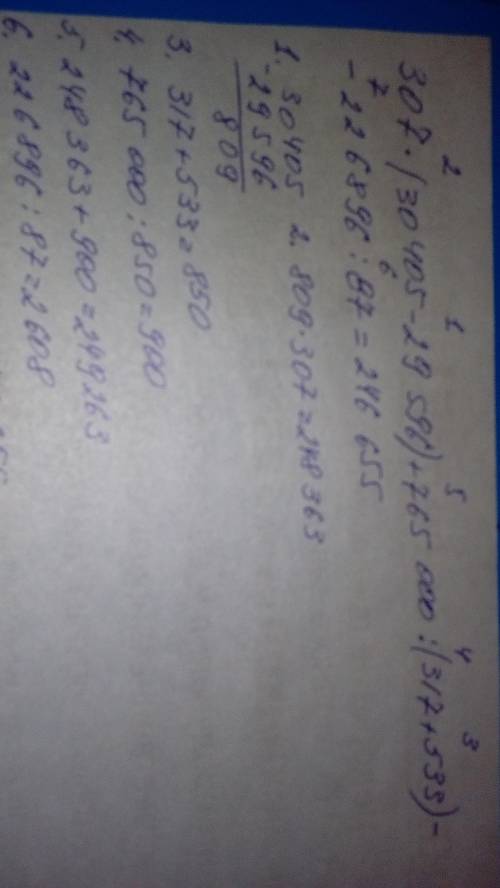 2 1 5 4 3
307·(30 405-29 596)+765 000:(317+533)-
7 6
- 226 896:87=246 655
1. 30405 2. 809·307=248 363
-29596
809
3. 317+533=850
4. 765 000:850=900
5. 248 363+900=249263
6. 226 896:87=2608